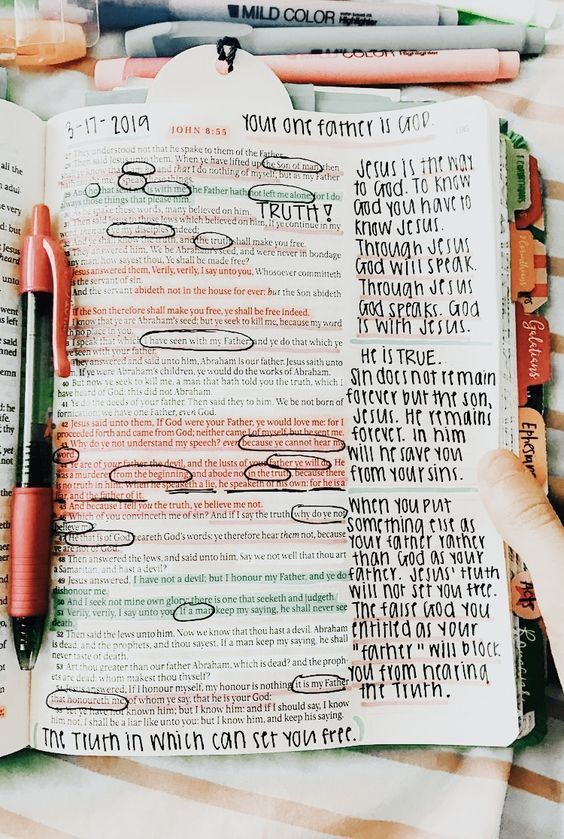 MILD COLOR Highlighter
MILDCOLOR Highlighter
3-17-2019
JOHN 8:55
YOUR ONE FATHER IS GOD.
They understood not that he spake to them of the Father.
Then said Jesus unto them, When ye have lifted up the Son of man, then
and that I do nothing of myself; but as my Father
speak things.
And he that is with me: the Father hath not left me alone; for I do
always those things that please him.
As he spake these words, many believed on him.
TRUTH!
Then said Jesus to those Jews which believed on him, If ye continue in my
are ye my disciples indeed;
And ye shall know the truth, and the truth shall make you free.
They answered him, We be Abraham's seed, and were never in bondage
to any man: how sayest thou, Ye shall be made free?
Jesus answered them, Verily, verily, I say unto you, Whosoever committeth
is the servant of sin.
And the servant abideth not in the house for ever: but the Son abideth
If the Son therefore shall make you free, ye shall be free indeed.
I know that ye are Abraham's seed; but ye seek to kill me, because my word
hath no place in you.
I speak that which I have seen with my Father: and ye do that which ye
have seen with your father.
They answered and said unto him, Abraham is our father. Jesus saith unto
them, If ye were Abraham's children, ye would do the works of Abraham.
40 But now ye seek to kill me, a man that hath told you the truth, which I
have heard of God: this did not Abraham.
41 Ye do the deeds of your father. Then said they to him, We be not born of
fornication; we have one Father, even God.
42 Jesus said unto them, If God were your Father, ye would love me: for I
proceeded forth and came from God; neither came I of myself, but he sent me.
43 Why do ye not understand my speech? even because ye cannot hear my
word.
44 Ye are of your father the devil, and the lusts of your father ye will do. He
was a murderer from the beginning, and abode not in the truth, because there
is no truth in him. When he speaketh a lie, he speaketh of his own: for he is a
liar, and the father of it.
45 And because I tell you the truth, ye believe me not.
46 Which of you convinceth me of sin? And if I say the truth, why do ye not
believe me?
47 He that is of God heareth God's words: ye therefore hear them not, because
ye are not of God.
48 Then answered the Jews, and said unto him, Say we not well that thou art
a Samaritan, and hast a devil?
49 Jesus answered, I have not a devil; but I honour my Father, and ye do
dishonour me.
50 And I seek not mine own glory: there is one that seeketh and judgeth.
51 Verily, verily, I say unto you, If a man keep my saying, he shall never see
death.
52 Then said the Jews unto him, Now we know that thou hast a devil. Abraham
is dead, and the prophets; and thou sayest, If a man keep my saying, he shall
never taste of death.
53 Art thou greater than our father Abraham, which is dead? and the proph-
ets are dead: whom makest thou thyself?
54 Jesus answered, If I honour myself, my honour is nothing: it is my Father
that honoureth me; of whom ye say, that he is your God:
55 Yet ye have not known him; but I know him: and if I should say, I know
him not, I shall be a liar like unto you: but I know him, and keep his saying.
THE TRUTH IN WHICH CAN SET YOU FREE.
JESUS IS THE WAY
TO GOD. TO KNOW
GOD YOU HAVE TO
KNOW JESUS.
THROUGH JESUS
GOD WILL SPEAK.
THROUGH JESUS
GOD SPEAKS. GOD
IS WITH JESUS.
HE IS TRUE.
SIN DOES NOT REMAIN
FOREVER BUT THE SON,
JESUS. HE REMAINS
FOREVER. IN HIM
WILL HE SAVE YOU
FROM YOUR SINS.
WHEN YOU PUT
SOMETHING ELSE AS
YOUR FATHER RATHER
THAN GOD AS YOUR
FATHER. JESUS' TRUTH
WILL NOT SET YOU FREE.
THE FALSE GOD YOU
ENTITLED AS YOUR
"FATHER" WILL BLOCK
YOU FROM HEARING
THE TRUTH.
Galatians
Ephesians
Acts